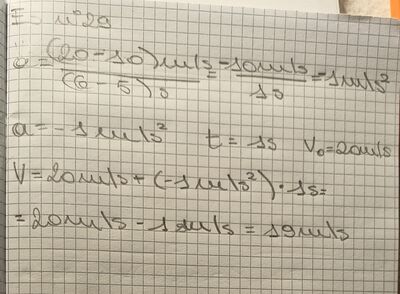 E. n°29
a = (20-10)m/s / (6-5)s = -10m/s / 1s = -1m/s²
a = -1m/s² t = 1s V₀=20m/s
V = 20m/s + (-1m/s²) · 1s =
= 20m/s - 1m/s = 19m/s